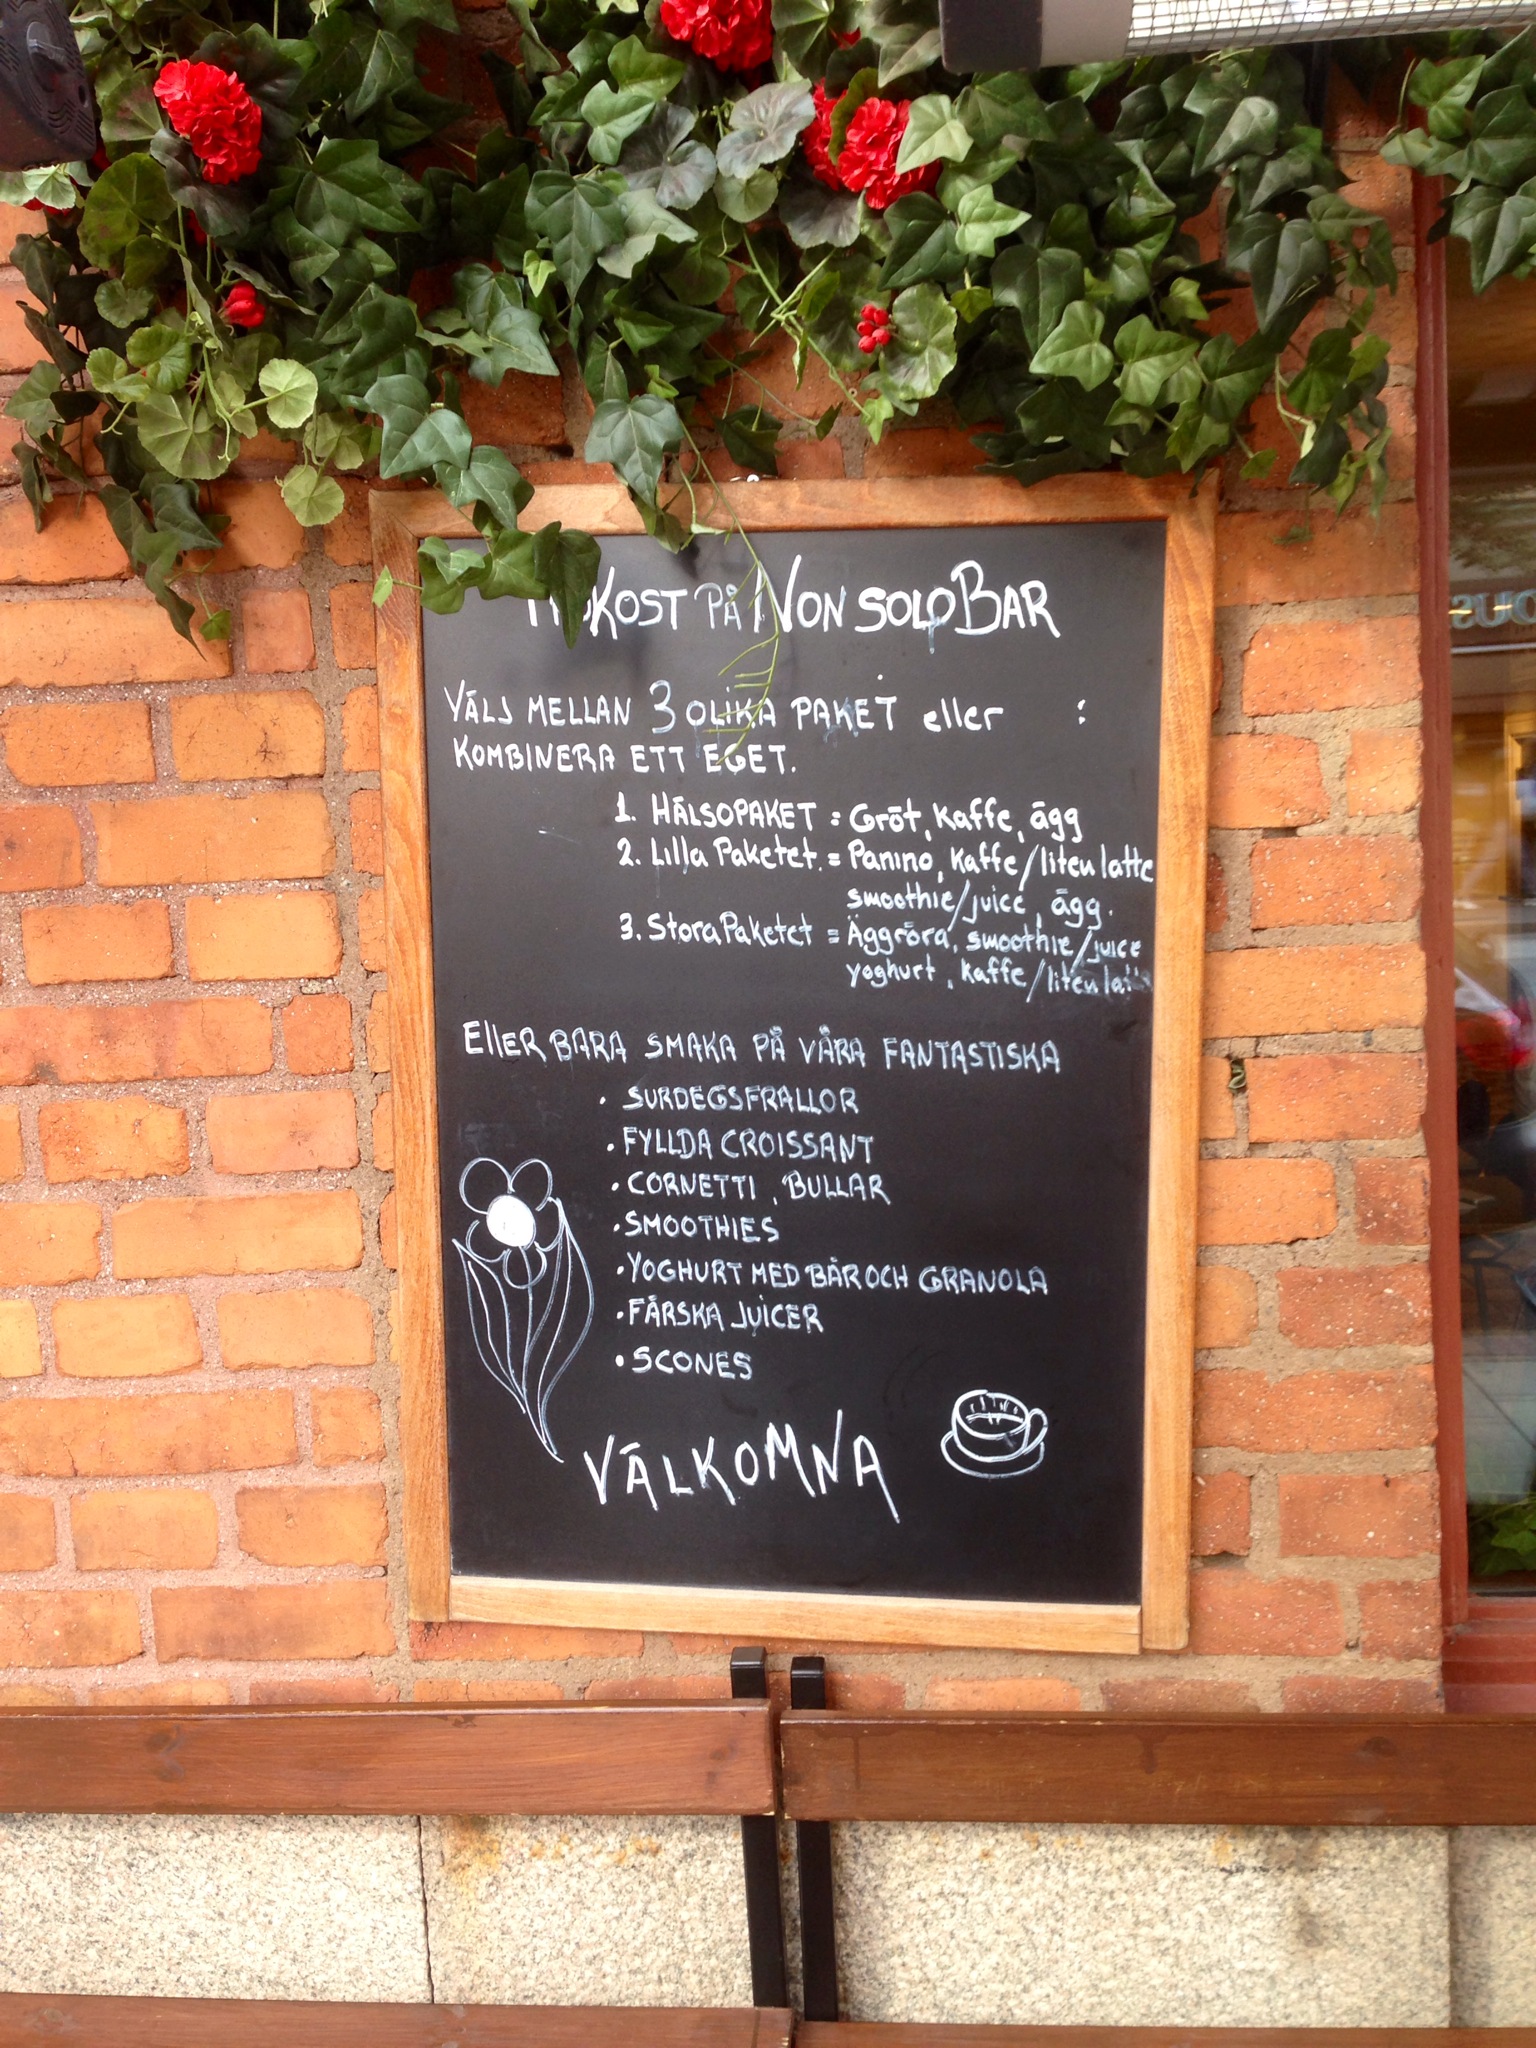 PÅ NON SOLO BAR
VÄLJ MELLAN 3 OLIKA PAKET eller :
KOMBINERA ETT EGET.
1. HÄLSOPAKET = Gröt, kaffe, ägg
2. Lilla Paketet. = Panino, kaffe/liten latte
smoothie/juice, ägg.
3. Stora Paketet = Äggröra, smoothie/juice
yoghurt, kaffe/liten latte
ELLER BARA SMAKA PÅ VÅRA FANTASTISKA
• SURDEGSFRALLOR
• FYLLDA CROISSANT
• CORNETTI, BULLAR
• SMOOTHIES
• YOGHURT MED BÄR OCH GRANOLA
• FÄRSKA JUICER
• SCONES
VÄLKOMNA